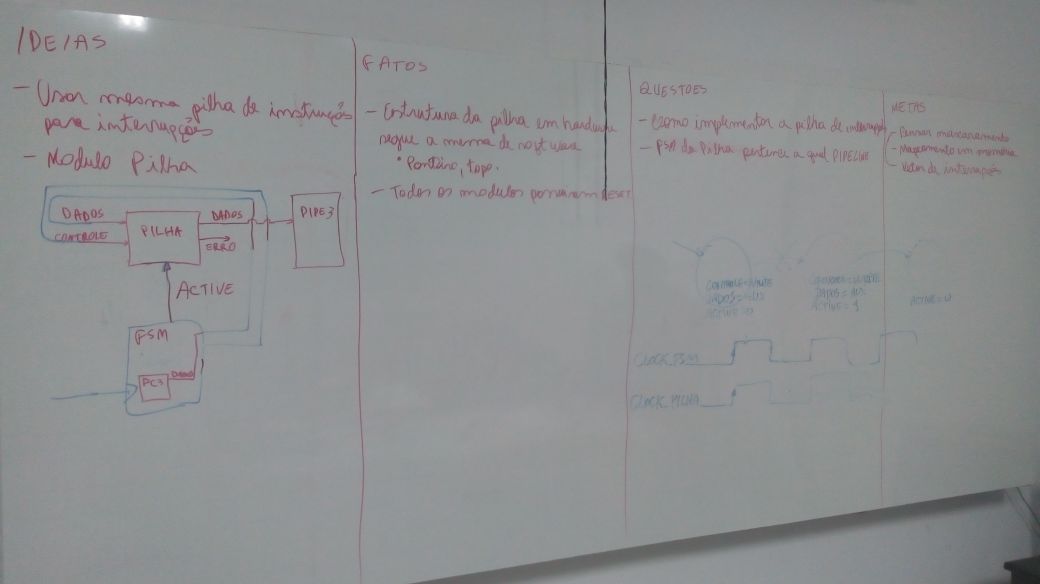 IDEIAS
- Usar mesma pilha de instruções
para interrupções
- Modulo Pilha
DADOS
CONTROLE
PILHA
DADOS
ERRO
PIPE3
ACTIVE
FSM
PC3
DADO
FATOS
- Estrutura da pilha em hardware
segue a mesma de software
• Ponteiro, topo.
- Todos os modulos possuem RESET
QUESTOES
- Como implementar a pilha de
- FSM da Pilha pertence a qual PIPELINE
CONTROLE=WRITE
ACTIVE=0
ACTIVE=1
ACTIVE=0
CLOCK_FSM
CLOCK_PILHA
METAS
- Pensar mascaramento
- Mapeamento em memória
- Vetor de interrupção